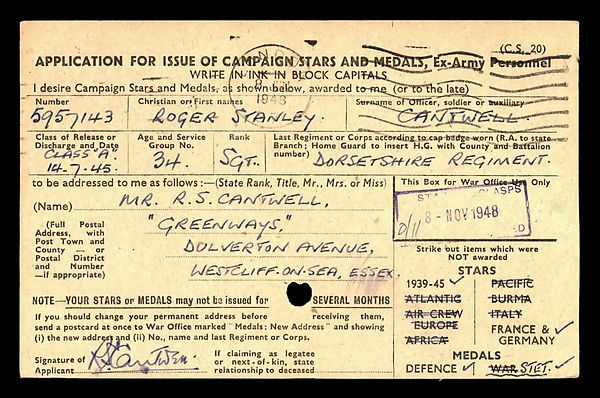 (C.S. 20)
APPLICATION FOR ISSUE OF CAMPAIGN STARS AND MEDALS, Ex-Army Personnel
WRITE IN INK IN BLOCK CAPITALS
1948
I desire Campaign Stars and Medals, as shown below, awarded to me (or to the late)
Number
Christian or First names
Surname of Officer, soldier or auxiliary
5957143
ROGER STANLEY.
CANTWELL.
Class of Release or Discharge and Date
CLASS 'A'.
14.7.45.
Age and Service Group No.
34.
Rank
SGT.
Last Regiment or Corps according to cap badge worn (R.A. to state
Branch; Home Guard to insert H.G. with County and Battalion
number)
DORSETSHIRE REGIMENT.
to be addressed to me as follows:—(State Rank, Title, Mr., Mrs. or Miss)
(Name)
MR. R.S. CANTWELL,
(Full Postal
Address, with
Post Town and
County — or
Postal District
and Number
—if appropriate)
"GREENWAYS,"
DULVERTON AVENUE,
WESTCLIFF-ON-SEA, ESSEX.
NOTE—YOUR STARS or MEDALS may not be issued for SEVERAL MONTHS
If you should change your permanent address before receiving them,
send a postcard at once to War Office marked "Medals: New Address" and showing
(i) the new address and (ii) No., name and last Regiment or Corps.
Signature of
Applicant
RSCantwell.
If claiming as legatee
or next-of-kin, state
relationship to deceased
This Box for War Office Use Only
CLASPS
8-NOV 1948
Strike out items which were
NOT awarded
STARS
1939-45 ✓
PACIFIC
ATLANTIC
BURMA
AIR CREW
EUROPE
ITALY
AFRICA
FRANCE &
GERMANY ✓
MEDALS
DEFENCE ✓
WAR STET. ✓